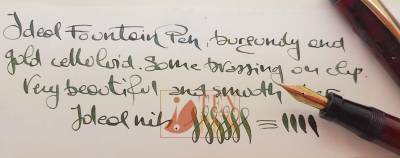 Ideal Fountain Pen, burgundy and
gold celluloid. Some brassing on clip.
Very beautiful and smooth
Ideal nib